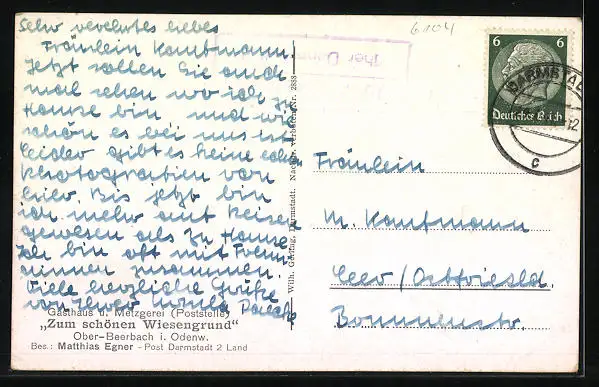 Sehr verehrtes liebes
Fräulein Kaufmann.
Jetzt sollen Sie auch
mal sehen wo ich zu
Hause bin und wie
schön es bei uns ist
leider gibt es keine
Photografien von
hier. Bis jetzt bin
ich mehr auf Reisen
gewesen als zu Hause
Ich bin oft mit Freun-
dinnen zusammen.
Viele herzliche Grüße
von Ihrer
Gasthaus u. Metzgerei (Poststelle)
„Zum schönen Wiesengrund“
Ober-Beerbach i. Odenw.
Bes.: Matthias Egner - Post Darmstadt 2 Land
Darmstadt. Nr. 2838
6104
6 6
Deutsches Reich
DARMSTADT
12
c
Fräulein
M. Kaufmann
Leer / Ostfriesld.
Bonnenstr.